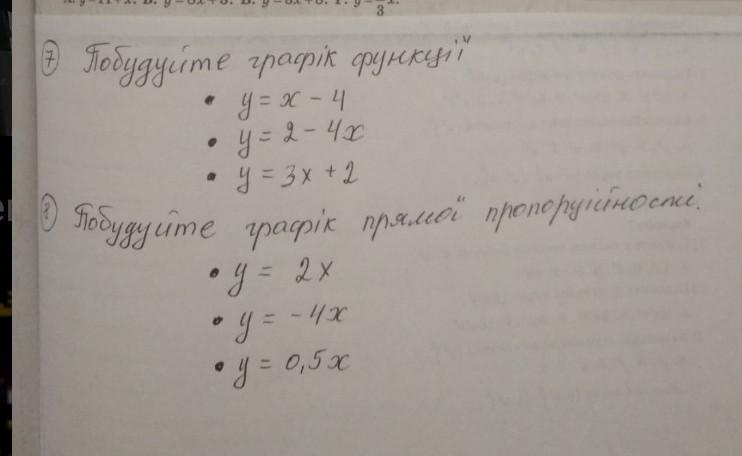 3
⑦ Побудуйте графік функції
• y = x - 4
• y = 2 - 4x
• y = 3x + 2
⑧ Побудуйте графік прямої пропорційності.
• y = 2x
• y = -4x
• y = 0,5x